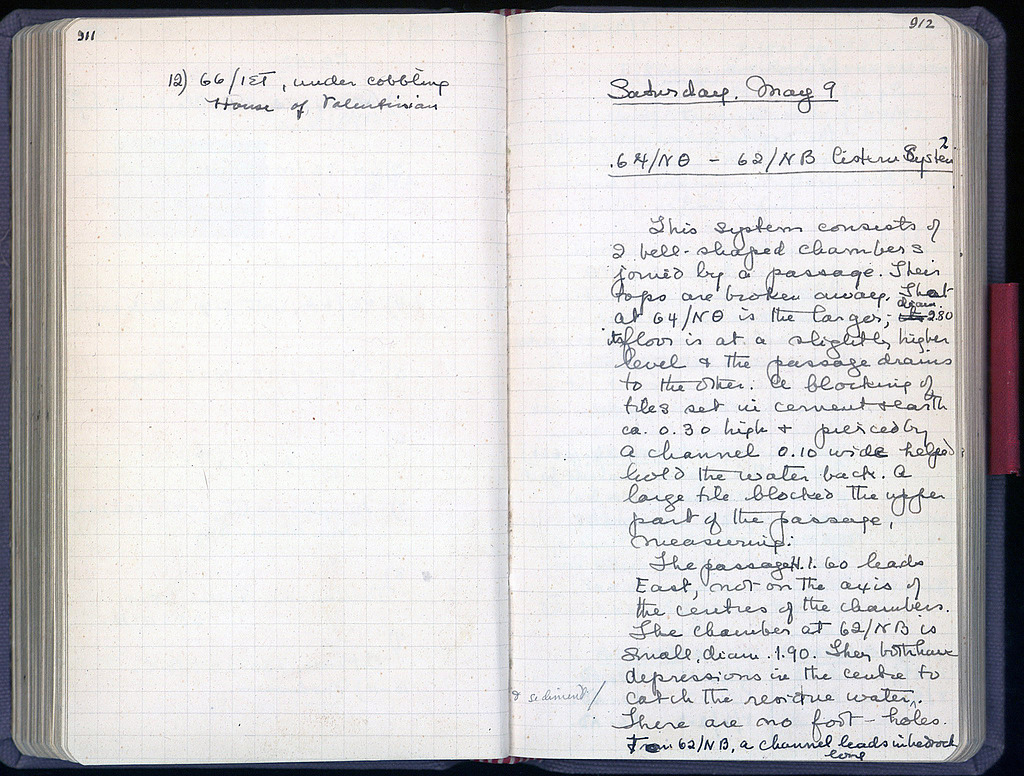 911
12) 66/ΙΣΤ, under cobbling
House of Valentinian
912
Saturday, May 9
64/ΝΘ - 62/ΝΒ Cistern System 2
This system consists of
2 bell-shaped chambers
joined by a passage. Their
tops are broken away. That
at 64/ΝΘ is the larger; diam. 2.80
its floor is at a slightly higher
level & the passage drains
to the other. A blocking of
tiles set in cement & earth
ca. 0.30 high & pierced by
a channel 0.10 wide helped
hold the water back. A
large tile blocked the upper
part of the passage,
measuring:
The passage H. 1.60 leads
East, not on the axis of
the centres of the chambers.
The chamber at 62/ΝΒ is
small, diam. 1.90. They both have
depressions in the centre to
& sediment / catch the residue water.
There are no foot-holes.
From 62/ΝΒ, a channel leads in bedrock